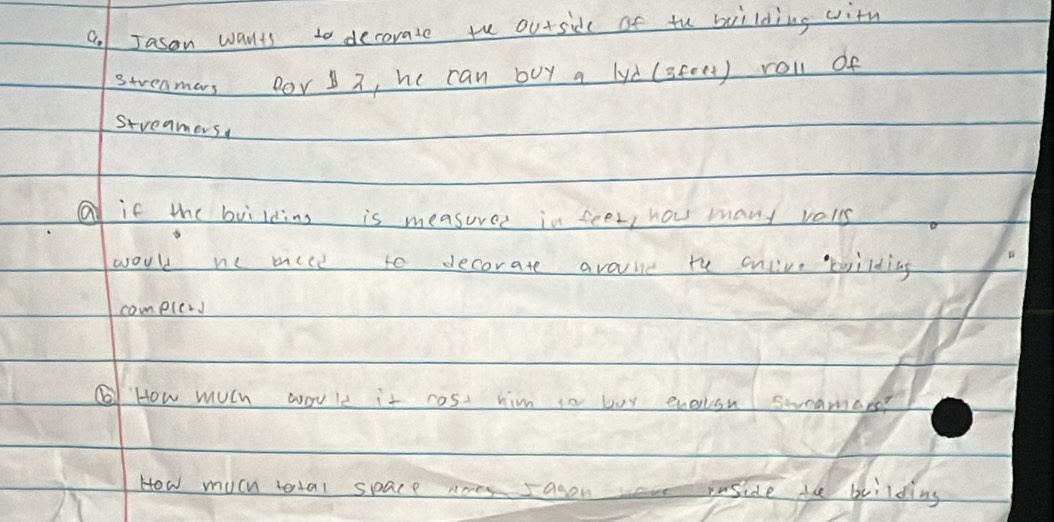 a. Jason wants to decorate the outside of the building with
streamers for $2, he can buy a 1yd (3feet) roll of
streamers.
ⓐ if the building is measured in feet, how many rolls
would he need to decorate around the entire building
ⓑ How much would it cost him to buy enough streamers?
How much total space Jason inside the building